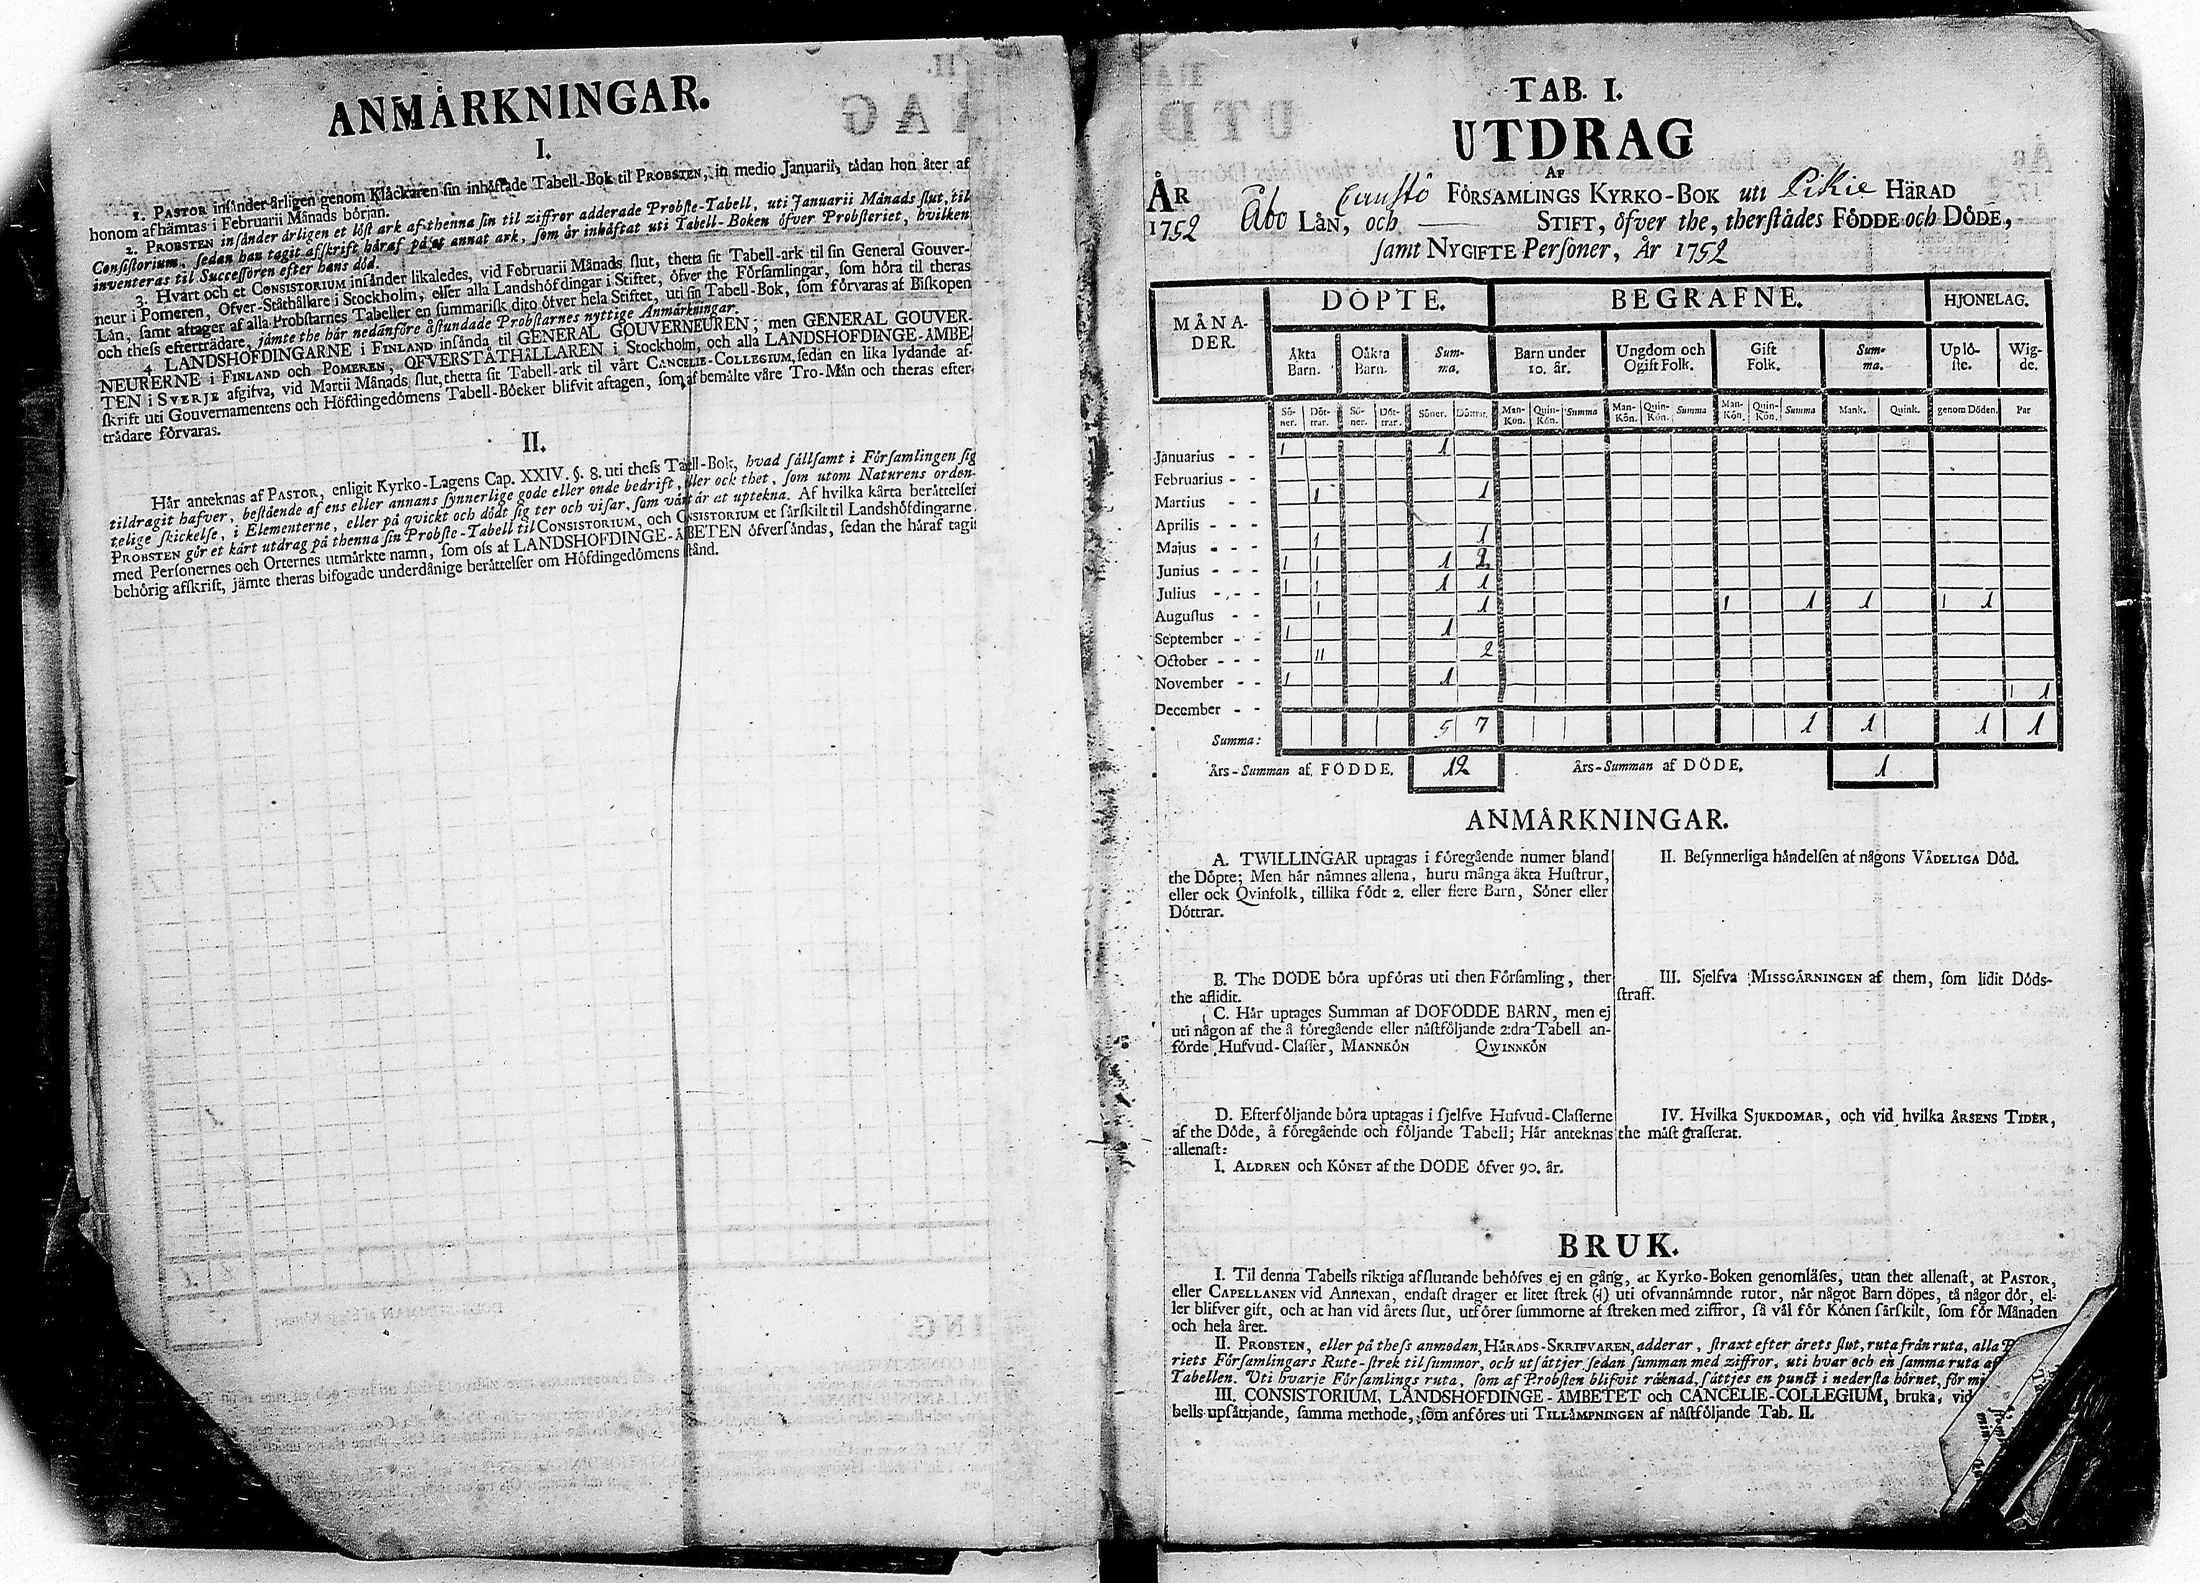 ANMÅRKNINGAR.
I.
1. PASTOR insånder årligen genom Klåckaren sin inhåftade Tabell-Bok til PROBSTEN, in medio Januarii, tådan hon åter af
honom afhåmtas i Februarii Månads början.
2. PROBSTEN insånder årligen et löst ark af thenna sin til ziffror adderade Probste-Tabell, uti Januarii Månads slut, til
Consistorium, sedan han tagit afskrift håraf på et annat ark, som år inhåftat uti Tabell-Boken öfver Probsteriet, hvilken
inventeras til Successoren efter hans död.
3. Hvart och et CONSISTORIUM insånder likaledes, vid Februarii Månads slut, thetta sit Tabell-ark til sin General Gouver-
neur i Pomeren, Ofver-Ståthållare i Stockholm, eller alla Landshöfdingar i Stiftet, öfver the Församlingar, som höra til theras
Lån, samt aftager af alla Probstarnes Tabeller en summarisk dito öfver hela Stiftet, uti sin Tabell-Bok, som förvaras af Biskopen
och thess eftertrådare, jämte the hår nedanföre åstundade Probstarnes nyttige Anmårkningar.
4. LANDSHÖFDINGARNE i FINLAND insånda til GENERAL GOUVERNEUREN; men GENERAL GOUVER-
NEURERNE i FINLAND och POMEREN, ÖFVERSTÅTHÅLLAREN i Stockholm, och alla LANDSHÖFDINGE-ÅMBE-
TEN i SVERJE afgifva, vid Martii Månads slut, thetta sit Tabell-ark til vårt CANCELIE-COLLEGIUM, sedan en lika lydande af-
skrift uti Gouvernamentens och Höfdingedömens Tabell-Böcker blifvit aftagen, som af bemålte våre Tro-Mån och theras efter-
trådare förvaras.
II.
Hår anteknas af PASTOR, enligit Kyrko-Lagens Cap. XXIV. §. 8. uti thess Tabell-Bok, hvad sållsamt i Församlingen sig
tildragit hafver, bestående af ens eller annans synnerlige gode eller onde bedrift, eller ock thet, som utom Naturens orden-
telige skickelse, i Elementerne, eller på qvickt och dödt sig ter och visar, som vårt år at uptekna. Af hvilka kårta beråttelser
PROBSTEN gör et kårt utdrag på thenna sin Probste-Tabell til CONSISTORIUM, och CONSISTORIUM et sårskilt til Landshöfdingarne,
med Personernes och Orternes utmårkte namn, som oss af LANDSHÖFDINGE-ÅMBETEN öfversåndas, sedan the håraf tagit
behörig afskrift, jämte theras bifogade underdånige beråttelser om Höfdingedömens stånd.
TAB. I.
UTDRAG
AF
ÅR Cuustö FÖRSAMLINGS KYRKO-BOK uti Pikie HÄRAD
1752 Åbo LÅN, och STIFT, öfver the, therstådes FÖDDE och DÖDE,
samt NYGIFTE Personer, År 1752
MÅNA-
DER. DÖPTE. BEGRAFNE. HJONELAG.
Åkta
Barn. Oåkta
Barn. Sum-
ma. Barn under
10. år. Ungdom och
Ogift Folk. Gift
Folk. Sum-
ma. Uplö-
ste. Wig-
de.
Sö-
ner. Döt-
trar. Sö-
ner. Döt-
trar. Söner. Döttrar. Man-
Kön. Quin-
Kön. Summa Man-
Kön. Quin-
Kön. Summa Man-
Kön. Quin-
Kön. Summa Mank. Quink. genom Döden. Par
Januarius - - 1 1
Februarius - -
Martius - - 1 1
Aprilis - - -
Majus - - - 1 1
Junius - - - 1 1 1 1
Julius - - - 1 1 1 1
Augustus - - 1 1 1 1 1 1 1
September - - 1 1
October - - - 11 2
November - - 1 1
December - - 1 1
Summa: 5 7 1 1 1 1
Års-Summan af FÖDDE. 12 Års-Summan af DÖDE. 1
ANMÅRKNINGAR.
A. TWILLINGAR uptagas i föregående numer bland
the Döpte; Men hår nåmnes allena, huru många åkta Hustrur,
eller ock Qvinfolk, tillika födt 2. eller flere Barn, Söner eller
Döttrar.
B. The DÖDE böra upföras uti then Församling, ther
the aflidit.
C. Hår uptages Summan af DÖFÖDDE BARN, men ej
uti någon af the å föregående eller nåstföljande 2:dra Tabell an-
förde Hufvud-Classer, MANNKÖN QWINNKÖN
D. Efterföljande böra uptagas i sjelfve Hufvud-Classerne
af the Döde, å föregående och följande Tabell; Hår anteknas
allenast:
I. ALDREN och KÖNET af the DÖDE öfver 90. år.
II. Besynnerliga håndelsen af någons VÅDELIGA Död.
III. Sjelfva MISSGÅRNINGEN af them, som lidit Döds-
straff.
IV. Hvilka SJUKDOMAR, och vid hvilka ÅRSENS TIDER,
the måst grasserat.
BRUK.
I. Til denna Tabells riktiga afslutande behöfves ej en gång, at Kyrko-Boken genomläses, utan thet allenast, at PASTOR,
eller CAPELLANEN vid Annexan, endast drager et litet strek (1) uti ofvannåmnde rutor, når något Barn döpes, tå någor dör, el-
ler blifver gift, och at han vid årets slut, utförer summorne af streken med ziffror, så vål för Könen sårskilt, som för Månaden
och hela året.
II. PROBSTEN, eller på thess anmodan, HÅRADS-SKRIFVAREN, adderar, straxt efter årets slut, ruta från ruta, alla P
riets Församlingars Rute-strek til summor, och utsåttjer sedan summan med ziffror, uti hvar och en samma ruta af
Tabellen. Uti hvarje Församlings ruta, som af Probsten blifvit råknad, såttjes en punct i nedersta hörnet, för mi
III. CONSISTORIUM, LANDSHÖFDINGE-ÅMBETET och CANCELIE-COLLEGIUM, bruka, vid
bells upsåttjande, samma methode, som anföres uti TILLÅMPNINGEN af nåstföljande Tab. II.